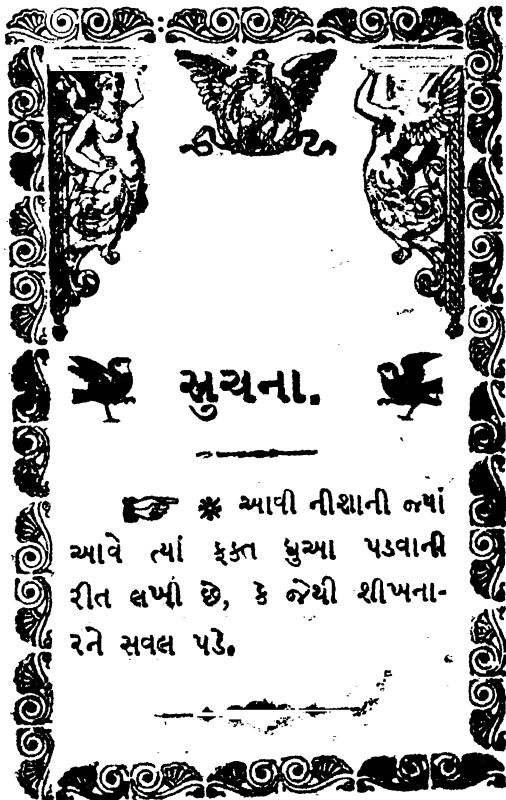 સુચના.
☞ ❋ આવી નીશાની જ્યાં
આવે ત્યાં ફક્ત ધ્રુઆ પડવાની
રીત લખી છે, કે જેથી શીખના-
રને સવલ પડે.